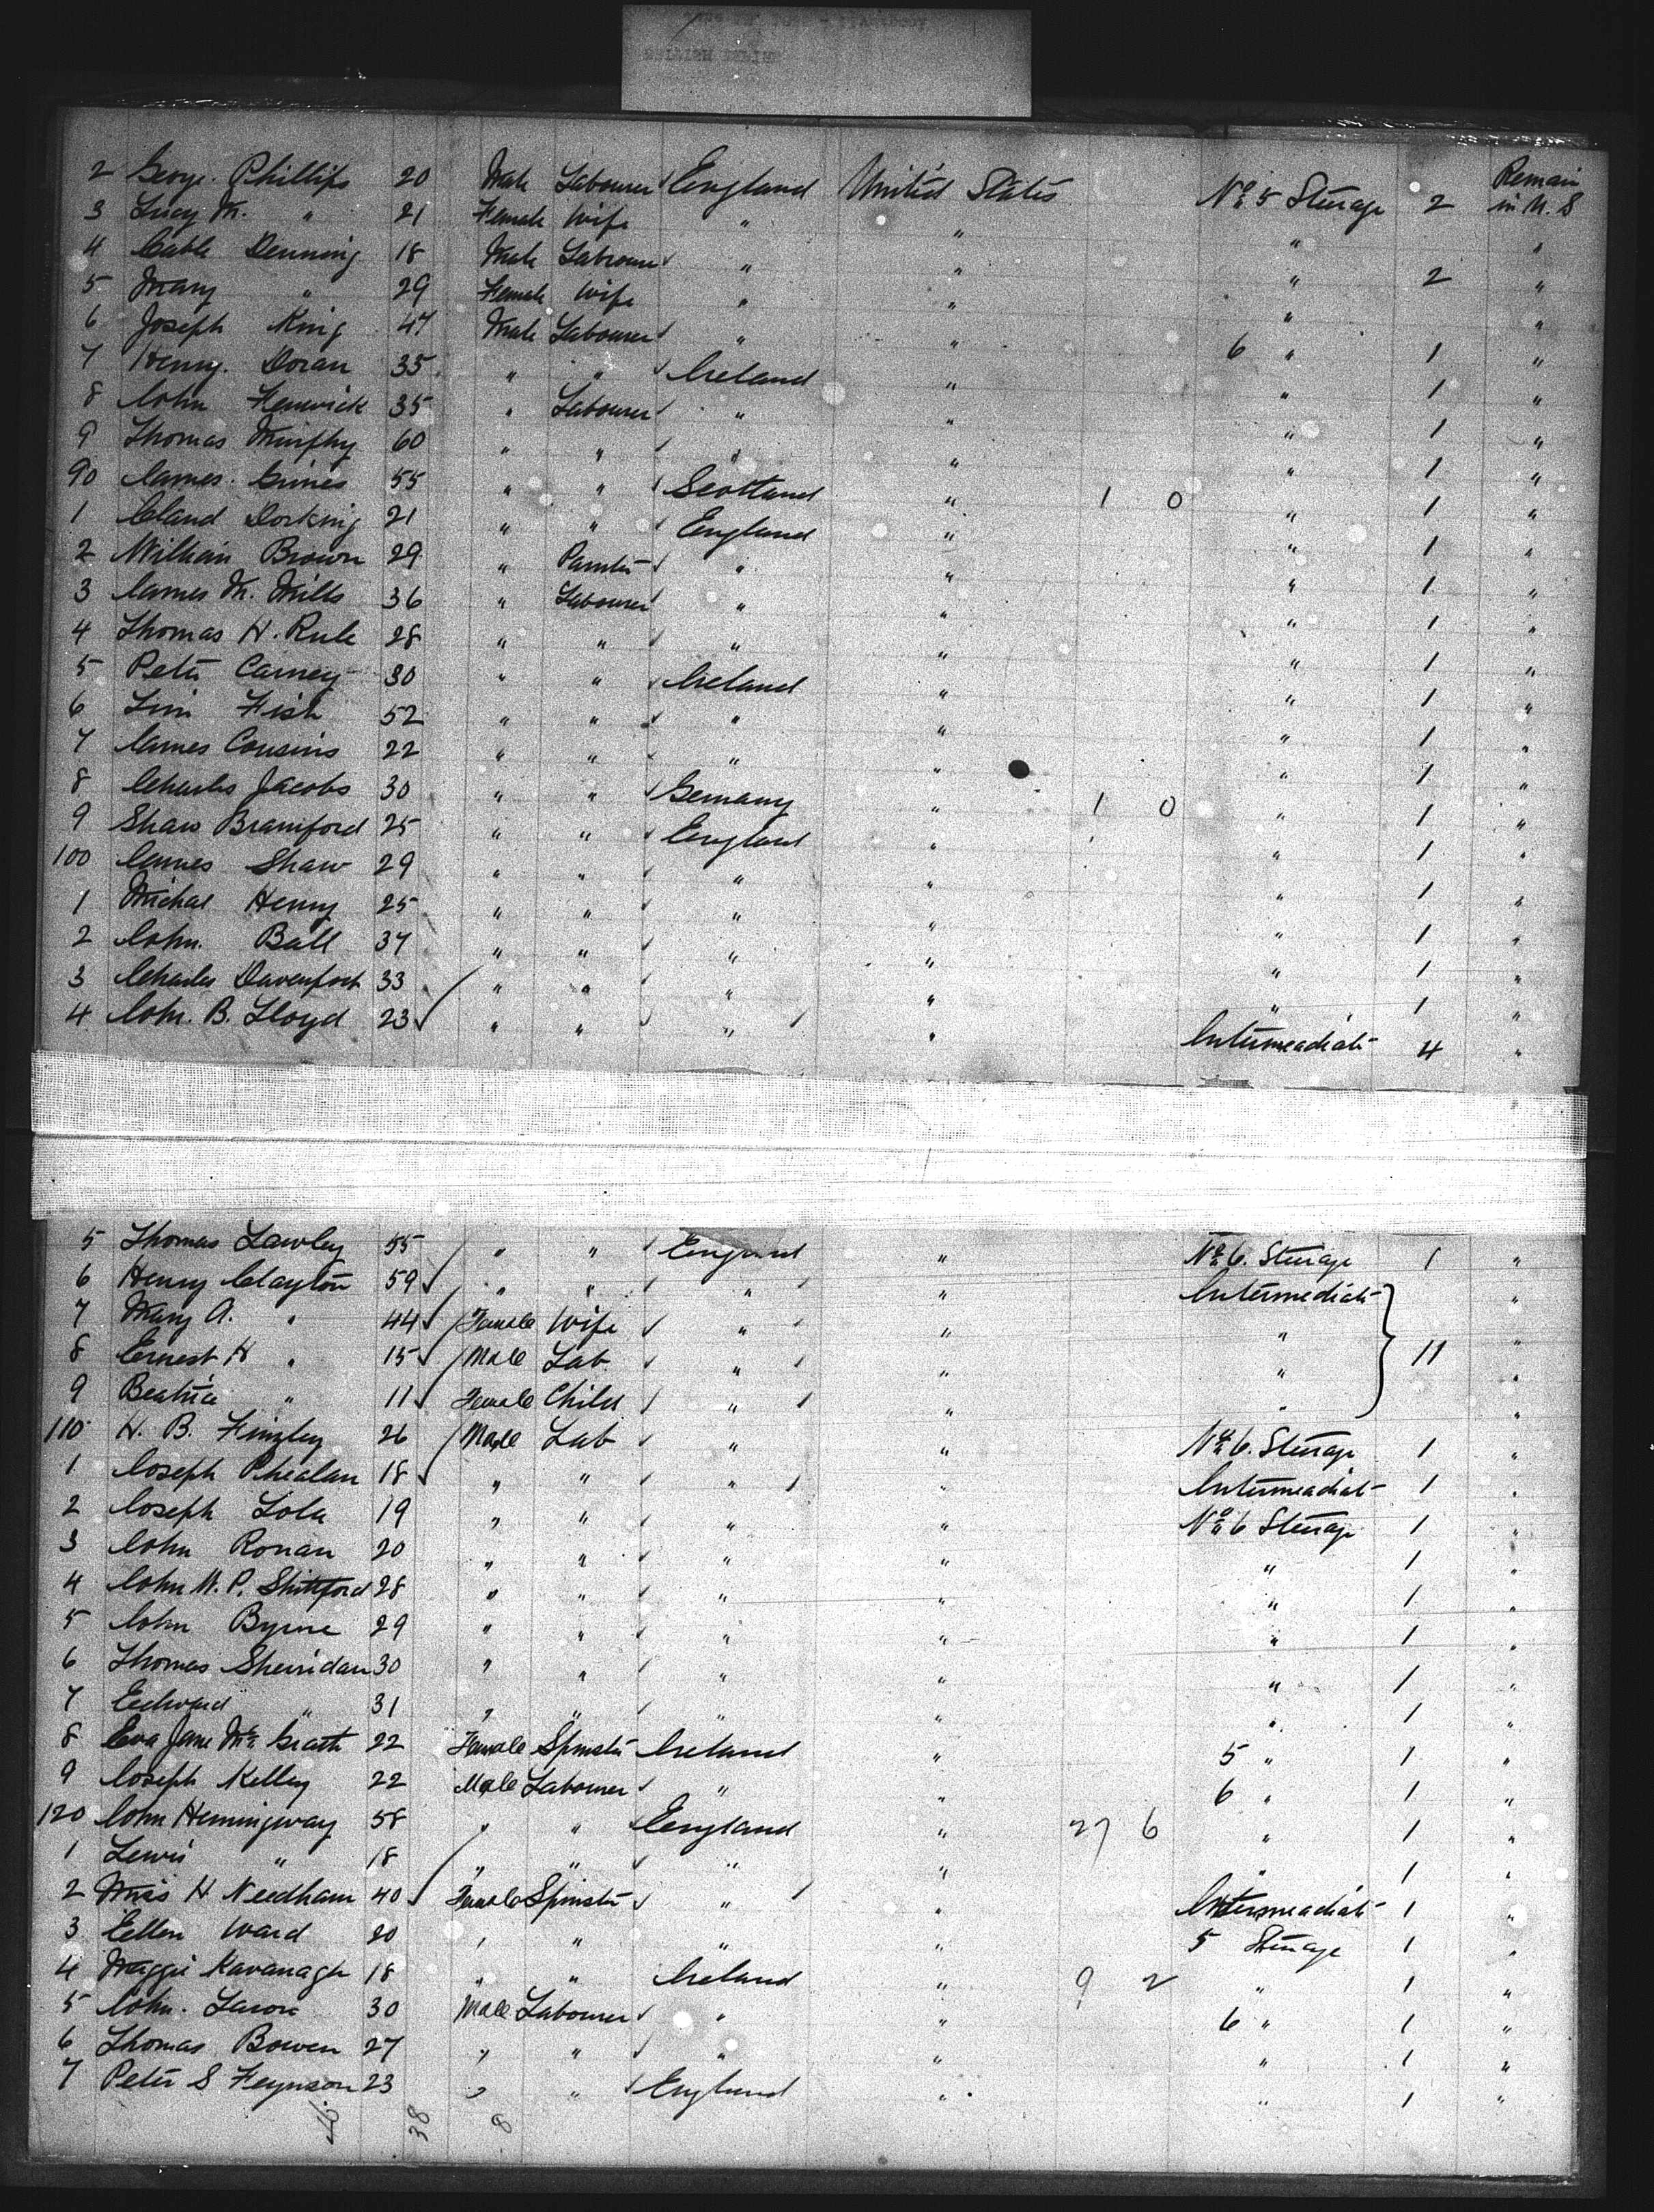 2 George Phillips 20 Male Labourer England United States No 5 Steerage 2 Remain in U.S
3 Lucy M. " 21 Female Wife " " " "
4 Denning 18 Male Labourer " " " 2 "
5 Mary " 29 Female Wife " " " "
6 Joseph King 47 Male Labourer " " 6 " 1 "
7 Henry Doran 35 " " Ireland " " 1 "
8 John Fenwick 35 " Labourer " " " 1 "
9 Thomas Murphy 60 " " " " " 1 "
90 James 55 " " Scotland " 1 0 " 1 "
1 Dorking 21 " " England " " 1 "
2 William Brown 29 " Painter " " " 1 "
3 James M. Mills 36 " Labourer " " " 1 "
4 Thomas H. Rule 28 " " " " " 1 "
5 Peter Carney 30 " " Ireland " " 1 "
6 Fish 52 " " " " " 1 "
7 James Cousins 22 " " " " " 1 "
8 Charles Jacobs 30 " " Germany " 1 0 " 1 "
9 Shaw Bramford 25 " " England " " 1 "
100 James Shaw 29 " " " " " 1 "
1 Michal Henry 25 " " " " " 1 "
2 John Ball 37 " " " " " 1 "
3 Charles Davenport 33 " " " " " 1 "
4 John B. Lloyd 23 " " " " Intermeadiate 4 "
5 Thomas Lawley 55 " " England " No 6. Steerage 1 "
6 Henry Clayton 59 " " " " Intermediate "
7 Mary A. " 44 Female Wife " " " 11 "
8 Ernest H " 15 Male Lab " " " "
9 Beatrice " 11 Female Child " " " "
110 H. B. Finzley 26 Male Lab " " No 6. Steerage 1 "
1 Joseph Phealan 18 " " " " Intermeadiate 1 "
2 Joseph Lola 19 " " " " No 6 Steerage 1 "
3 John Ronan 20 " " " " " 1 "
4 John W. P. 28 " " " " " 1 "
5 John Byrne 29 " " " " " 1 "
6 Thomas Sherridan 30 " " " " " 1 "
7 Edward " 31 " " " " " 1 "
8 Eva Jane McGrath 22 Female Spinster Ireland " 5 " 1 "
9 Joseph Kelley 22 Male Labourer " " 6 " 1 "
120 John Hemingway 58 " " England " 27 6 " 1 "
1 Lewis " 18 " " " " " 1 "
2 Miss H Needham 40 Female Spinster " " Intermeadiate 1 "
3 Ellen Ward 20 " " " " 5 Steerage 1 "
4 Maggie Kavanagh 18 " " Ireland " 9 2 " 1 "
5 John 30 Male Labourer " " 6 " 1 "
6 Thomas Bowen 27 " " " " " 1 "
7 Peter S 23 " " England " " 1 "
38 8